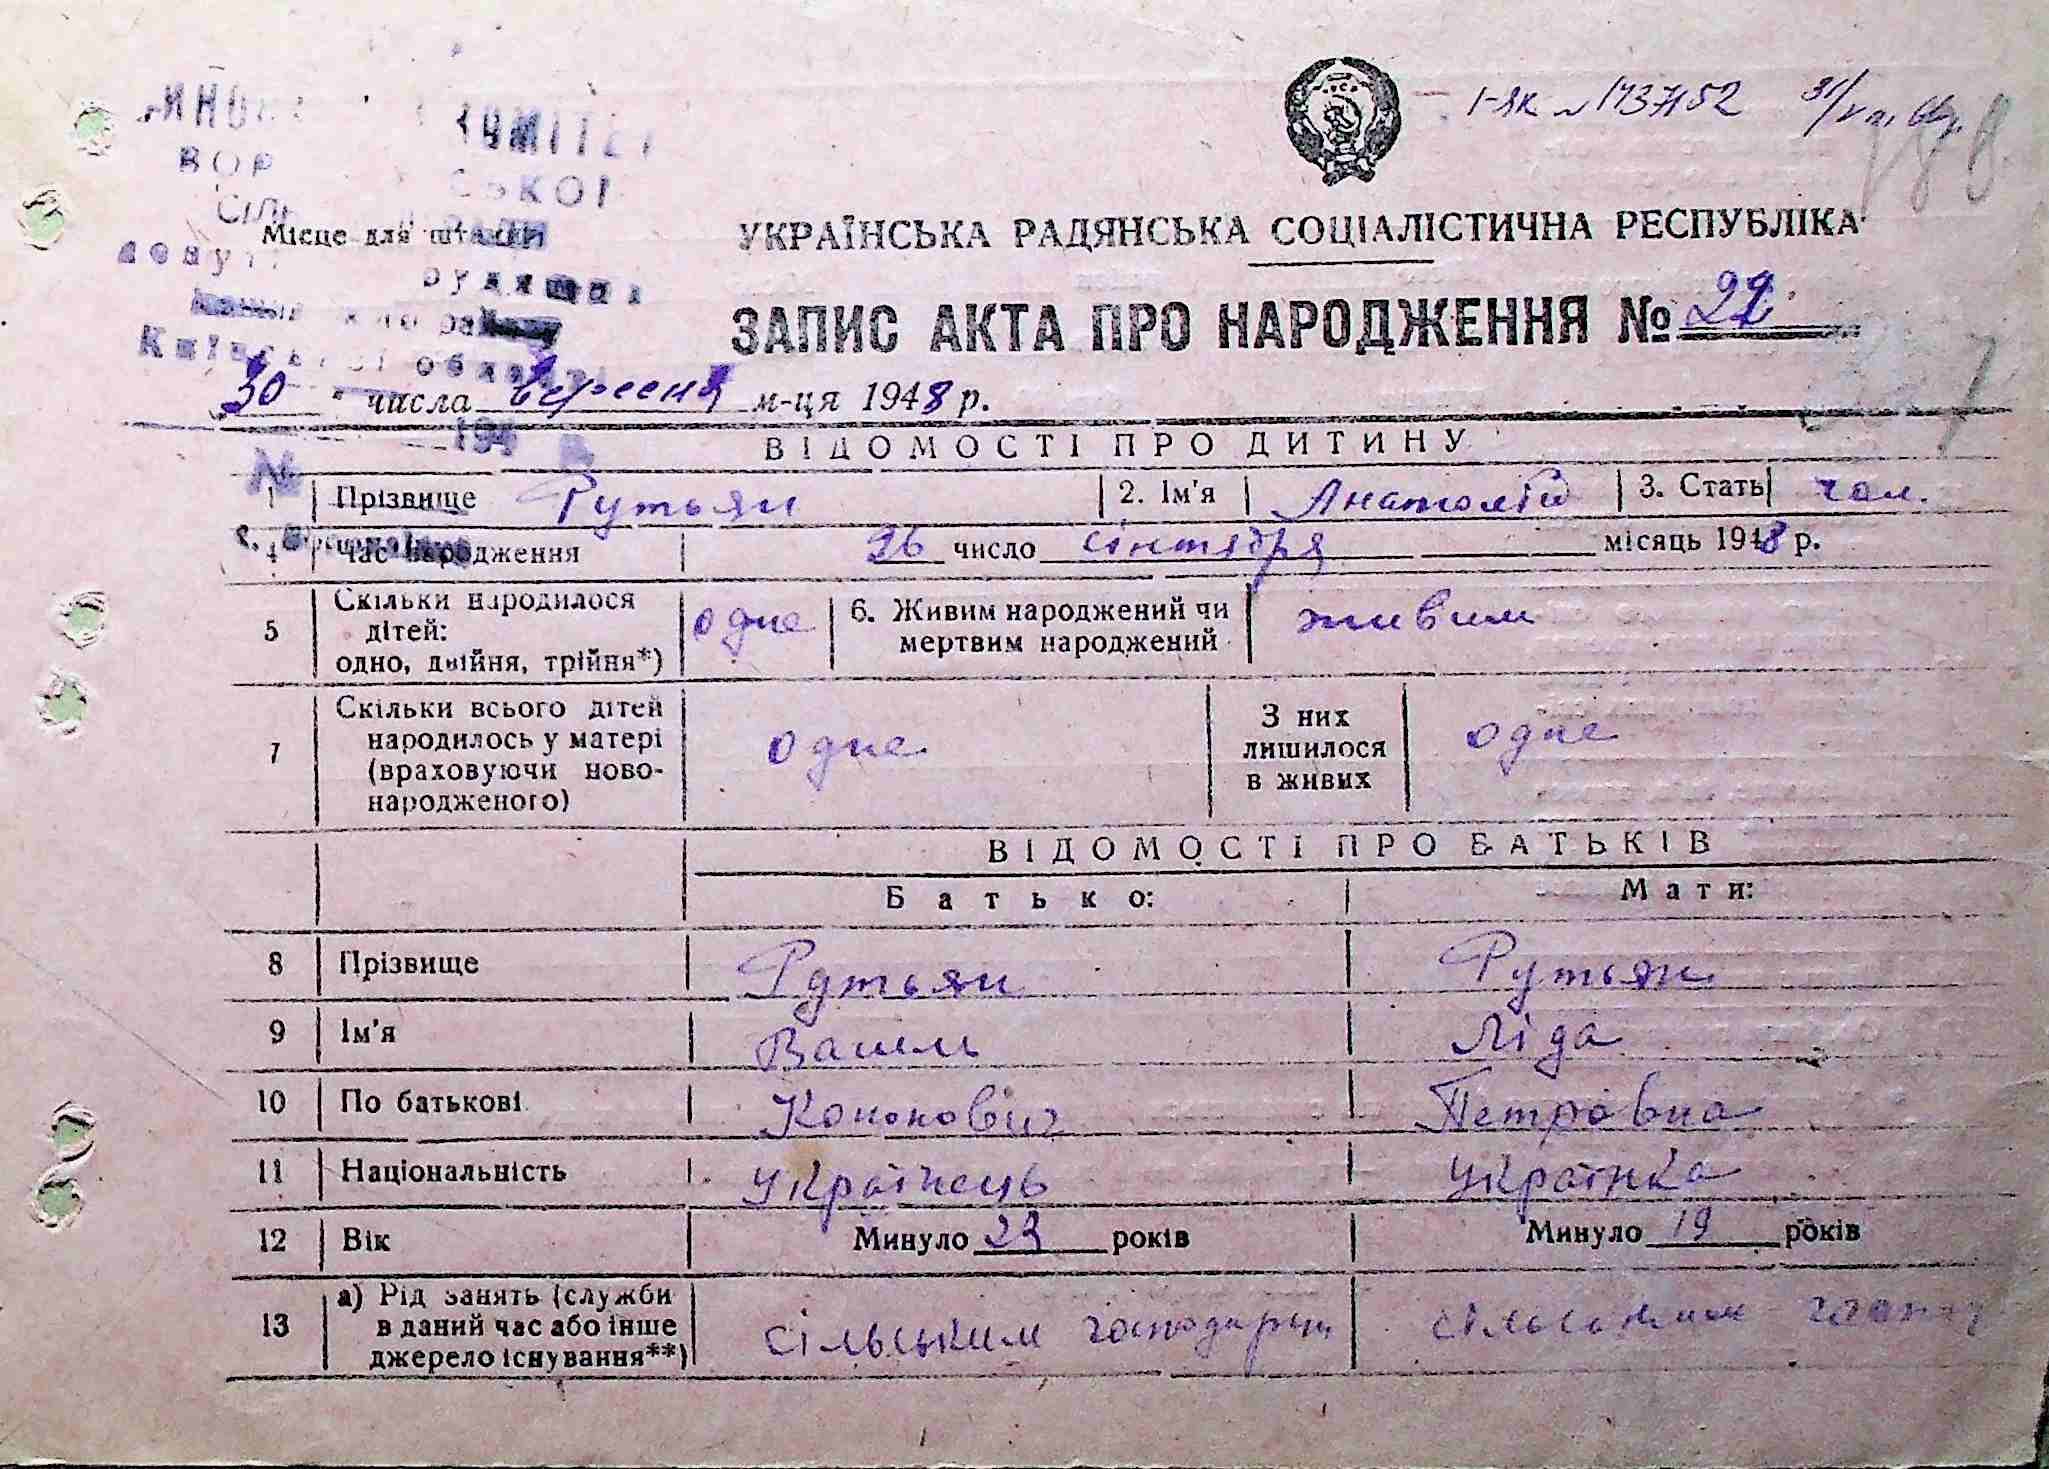 І-ЯК № 1737152
УКРАЇНСЬКА РАДЯНСЬКА СОЦІАЛІСТИЧНА РЕСПУБЛІКА
Місце для штампу
ЗАПИС АКТА ПРО НАРОДЖЕННЯ № 22
30 " числа вересня м-ця 1948 р.
ВІДОМОСТІ ПРО ДИТИНУ
1 Прізвище Рутьян 2. Ім'я Анатолій 3. Стать чол.
4 Час народження 26 число сінтября місяць 1948 р.
5 Скільки народилося дітей: одно, двійня, трійня*) одне 6. Живим народжений чи мертвим народжений живим
7 Скільки всього дітей народилось у матері (враховуючи ново-народженого) одне З них лишилося в живих одне
ВІДОМОСТІ ПРО БАТЬКІВ
Батько: Мати:
8 Прізвище Рутьян Рутьян
9 Ім'я Василь Ліда
10 По батькові Кононович Петровна
11 Національність Українець Українка
12 Вік Минуло 23 років Минуло 19 років
13 а) Рід занять (служби в даний час або інше джерело існування**) сільським господарш сільським